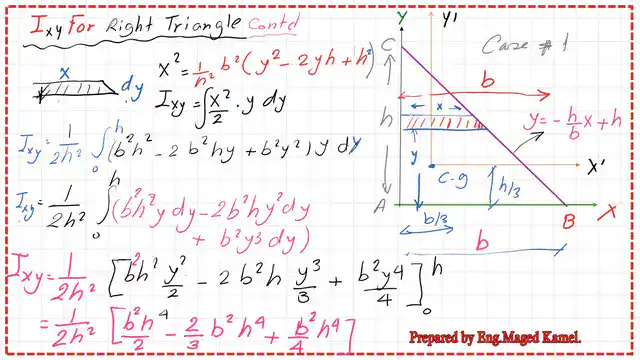 Ixy For Right Triangle Contd
x² = 1/h² b² (y² - 2yh + h²)
x
dy
Ixy = ∫ x²/2 . y dy
Ixy = 1/2h² ∫₀ʰ (b²h² - 2b²hy + b²y²) y dy
Ixy = 1/2h² ∫₀ʰ (b²h²y dy - 2b²hy²dy
+ b²y³dy)
Ixy = 1/2h² [b²h² y²/2 - 2b²h y³/3 + b²y4/4]₀ʰ
= 1/2h² [b²h⁴/2 - 2/3 b²h⁴ + b²h⁴/4]
Y
Y'
Case # 1
C
b
x
h
y = -h/b x + h
y
X'
C.g
h/3
A
B
X
b/3
b
Prepared by Eng.Maged Kamel.